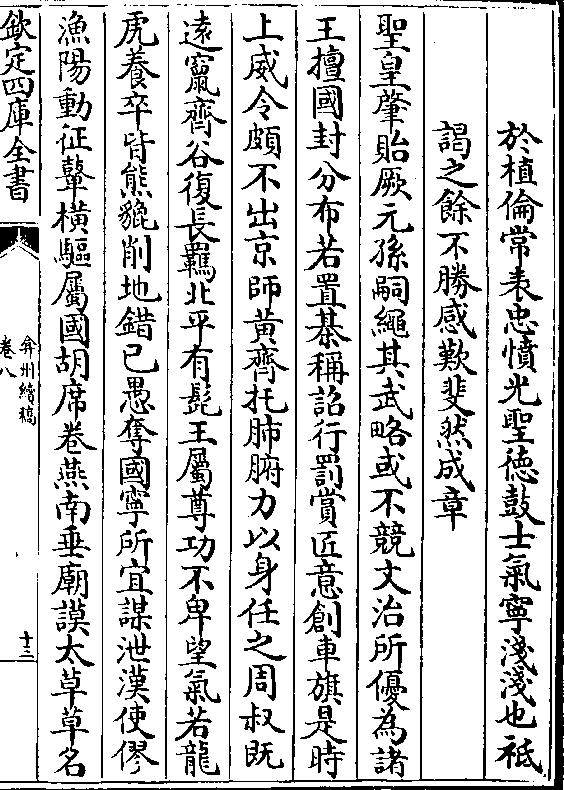 於植倫常表忠憤光聖徳鼓士氣寧淺淺也祗
謁之餘不勝感歎斐然成章
聖皇肇貽厥元孫嗣繩其武略或不競文治所優為諸
王擅國封分布若置棊稱詔行罰賞匠意創車旗是時
上威令頗不出京師黄齊托肺腑力以身任之周叔既
逺竄齊谷復長羈北平有髭王屬尊功不卑望氣若龍
虎養卒皆熊貔削地錯已愚奪國寧所宜謀泄漢使僇
漁陽動征鼙横驅屬國胡席卷燕南垂廟謨太草草名
欽定四庫全書
弇州續稿
卷八
十三